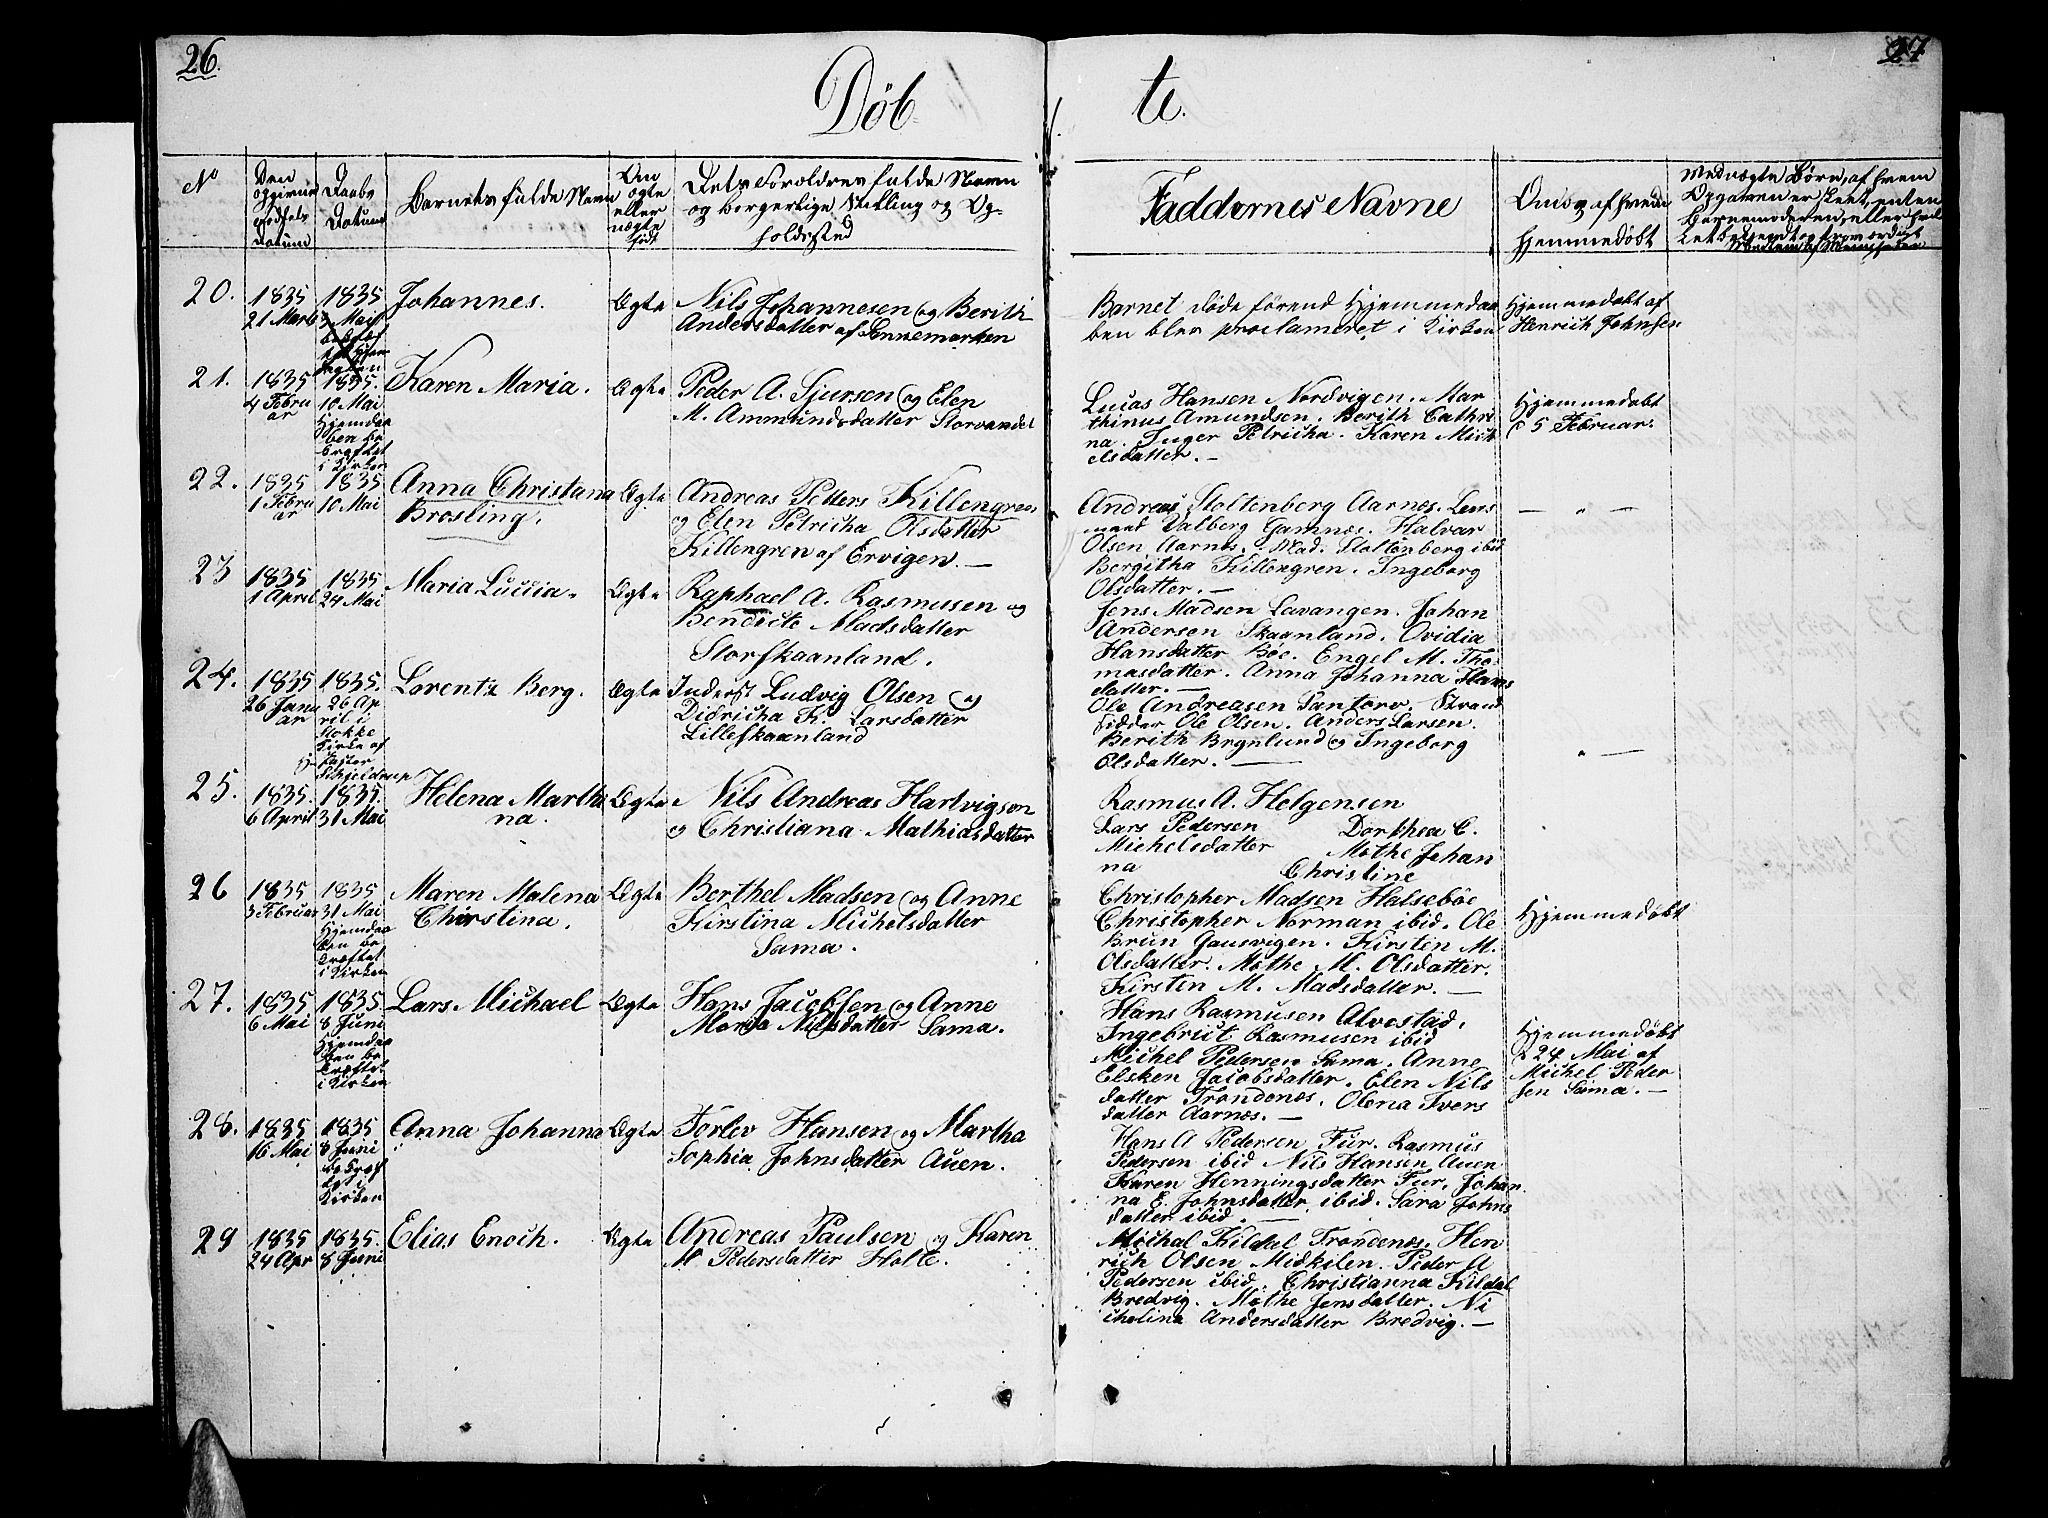 26.
27
Döb
te.
No
Den
opgivne
Fødsels
Datum
Daabs
Datum
Barnets fulde Navn
Om
ægte
eller
uægte
født
Dets Forældres fulde Navn
og borgerlige Stilling og Op-
holdssted
Faddernes Navne
Om og af hvem
Hjemmedøbt
Ved uægte Børn, af hvem
Opgaven er skeet, enten
Barnemoderen, eller
20.
1835
21 Marts
1835
3 Mai
Johannes.
Ægte
Nils Johannesen og Berith
Andersdatter af Sennemarken
Barnet døde förend Hjemmedaa
ben blev proclameret i Kirken
Hjemmedøbt af
Henrich Johnsen
21.
1835
4 Febru
ar
1835.
10 Mai
Hjemdaa
ben be
kræftet
i Kirken
Karen Maria.
Ægte
Peder A. Sjursen og Elen
M. Ammundsdatter Storvandet
Lucas Hansen Nordvigen. Mar
thinus Amundsen. Berith Cathri
na. Inger Petricha. Karen Mich
elsdatter. —
Hjemmedøbt
d 5 Februar.
22.
1835
1 Febru
ar
1835
10 Mai
Anna Christana
Brosling.
Ægte
Andreas Petters Killengreen
og Elen Petricha Olsdatter
Killengren af Ervigen. —
Andreas Stoltenberg Aarnes. Lens
mand Valberg Gamnes. Halvar
Olsen Aarnes. Mad. Stoltenberg ibid
Bergitha Killengren. Ingeborg
Olsdatter. —
— „ —
23
1835
1 April
1835
24 Mai
Maria Luccia.
Ægte
Raphael A. Rasmusen og
Bendicte Madsdatter
Storskaanland.
Jens Madsen Lavangen. Johan
Andersen Skaanland. Ovidia
Hansdatter Böe. Engel M. Tho
masdatter. Anna Johanna Hans
datter. —
24.
1835
26 Janu
ar
1835.
26 Ap
ril i
Kirke af
Pastor
Schjelderup
Lorentz Berg.
Ægte
Inderst Ludvig Olsen og
Didricha K. Larsdatter
Lilleskaanland
Ole Andreasen Santorv. Strand
sidder Ole Olsen. Anders Larsen.
Berith Brynlund og Ingeborg
Olsdatter. —
„ —
25.
1835.
6 April
1835.
31 Mai
Helena Marthi
na.
Ægte
Nils Andreas Hartvigson
og Christiana Mathiasdatter
Rasmus A. Helgensen
Lars Pedersen Dorthea C.
Michelsdatter Mathe Johan
na Christine
26
1835
3 Februar
1835
31 Mai
Hjemdaa
ben be
kræftet
i Kirken
Maren Malena
Christina.
Ægte
Berthel Madsen og Anne
Kirstina Michelsdatter
Sama.
Christopher Madsen Halseböe
Christopher Norman ibid. Ole
Brun Gausvigen. Kirsten M.
Olsdatter. Mathe M. Olsdatter.
Kirsten M. Madsdatter. —
Hjemmedøbt
27.
1835
6 Mai
1835.
8 Juni
Hjemdaa
ben be
kræftet
i Kirken
Lars Michael
Ægte
Hans Jacobsen og Anne
Marja Nilsdatter Sama.
Hans Rasmusen Alvestad.
Ingebriit Rasmusen ibid
Michel Pedersen Sama. Anne
Elsken Jacobsdatter. Elen Nils
datter Trondenæs. Olena Ivers
datter Aarnes. —
Hjemmedøbt
d 24 Mai af
Michel Peder
sen Sama. —
28.
1835
16 Mai
1835
8 Juni
Kirken
Anna Johanna
Ægte
Torlev Hansen og Martha
Sophia Johnsdatter Auen.
Hans A Pedersen Fur. Rasmus
Pedersen ibid Nils Hansen Auen
Karen Henningsdatter Fur. Johan
na E. Johnsdatter ibid. Sara Johns
datter ibid. —
29
1835
24 Apr
1835.
8 Juni
Elias Enoch.
Ægte
Andreas Paulsen og Karen
M Pedersdatter Holte.
Michal Kildal Trondenæs. Hen
rich Olsen Midkilen. Peder A
Pedersen ibid. Christianna Kildal
Bredvig. Mathe Jensdatter. Ni
cholina Andersdatter Bredvig. —